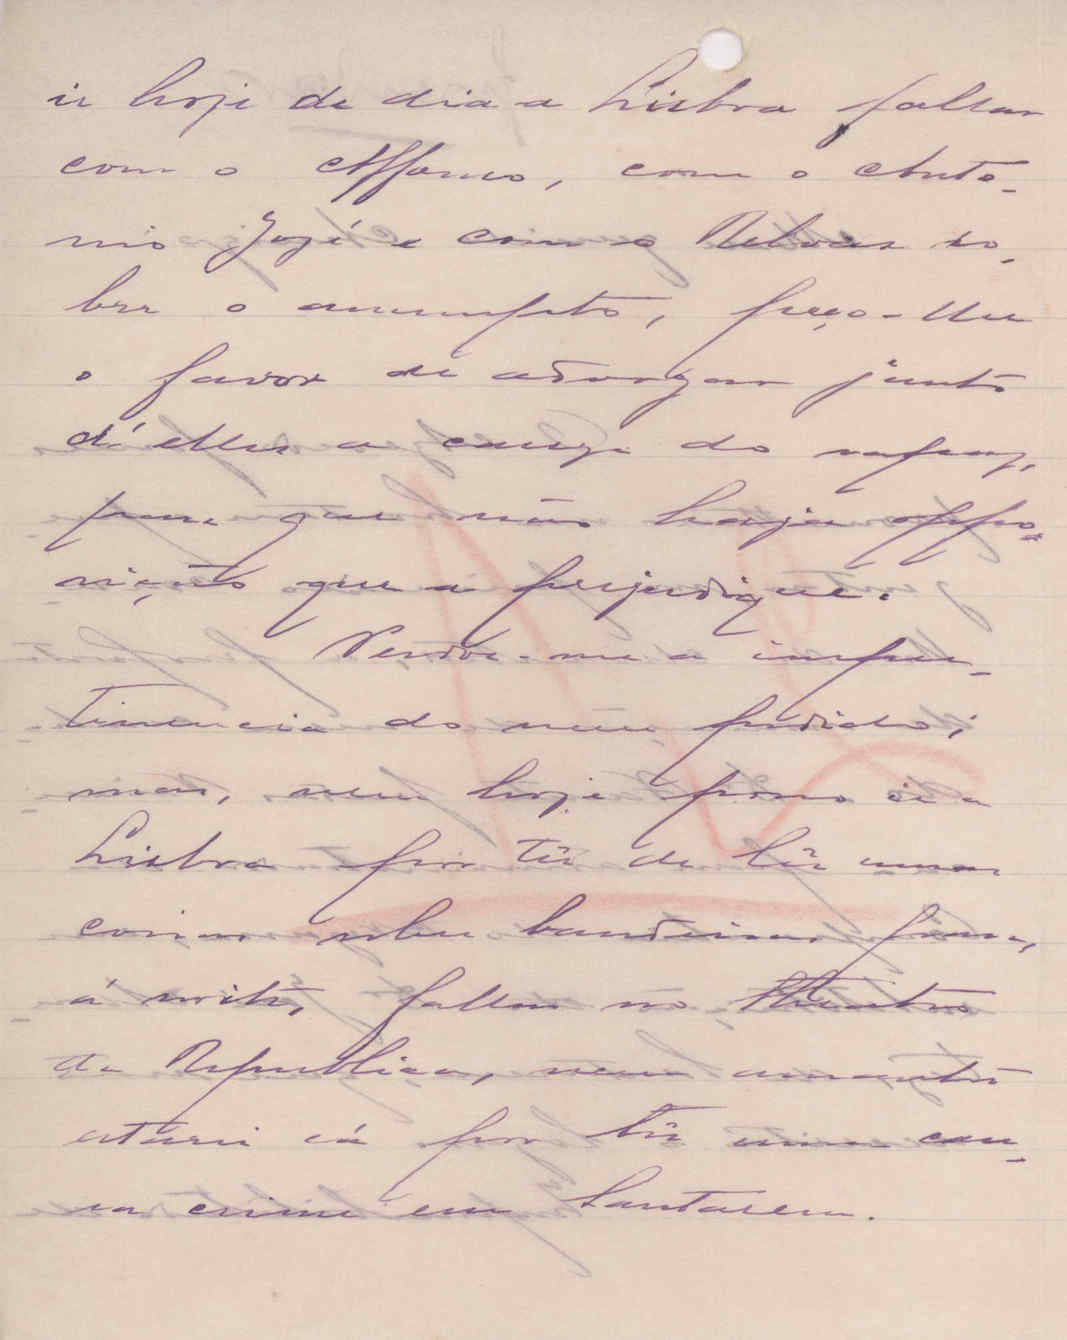 ir hoje de dia a Lisboa fallar
com o Affonso, com o Anto-
nio José e com o Relvas so-
bre o assumpto, peço-lhe
o favor de advogar junto
d'elles a causa do rapaz,
para que não haja oppo-
sição que a prejudique.
Perdoe-me a imper-
tinencia do meu pedido;
mas, nem hoje posso ir a
Lisboa por têr de lêr umas
coisas sobre bandeiras para,
á noite, fallar no Theatro
da Republica, nem amanhã
estarei cá por têr uma cau-
sa crime em Santarem.